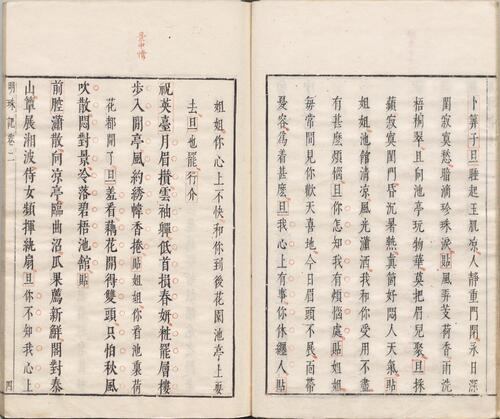 卜算子旦睡起玉肌凉人靜重門閉永日深
閨寂寞愁暗滴珍珠淚貼風弄芰荷香雨洗
梧桐翠且向池亭玩物華莫把眉兒聚旦採
蘋寂寞閨門昏沉暑熱真箇好悶人天氣貼
姐姐池館清凉風光瀟洒我和你受用不盡
有甚麽煩惱旦你怎知我有煩惱處貼姐姐
每常間見你歡天喜地今日眉頭不展面帶
憂容爲着甚麽旦我心上有事你休纏人貼
景中情
姐姐你心上不快和你到後花園池亭上耍
去旦也罷行介
祝英臺月眉攢雲袖嚲低首損春妍粧罷層樓
步入閒亭風約綉幃香捲貼姐姐你看池裏荷
花都開了旦羞看藕花開得雙頭只怕秋風
吹散悶對景冷落碧梧池館貼
前腔瀟散向凉亭臨曲沼瓜果薦新鮮閣對泰
山簟展湘波侍女頻揮紈扇旦你不知我心上
明珠記卷二
四